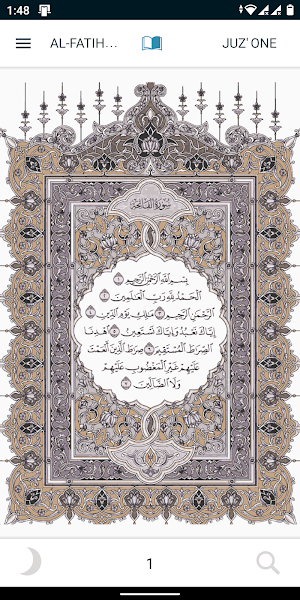 1:48
AL-FATIH...
JUZ' ONE
سُورَةُ الفَاتِحَةِ
بِسْمِ اللَّهِ الرَّحْمَٰنِ الرَّحِيمِ ١
الْحَمْدُ لِلَّهِ رَبِّ الْعَالَمِينَ ٢
الرَّحْمَٰنِ الرَّحِيمِ ٣ مَالِكِ يَوْمِ الدِّينِ ٤
إِيَّاكَ نَعْبُدُ وَإِيَّاكَ نَسْتَعِينُ ٥ اهْدِنَا
الصِّرَاطَ الْمُسْتَقِيمَ ٦ صِرَاطَ الَّذِينَ أَنْعَمْتَ
عَلَيْهِمْ غَيْرِ الْمَغْضُوبِ عَلَيْهِمْ
وَلَا الضَّالِّينَ ٧
1